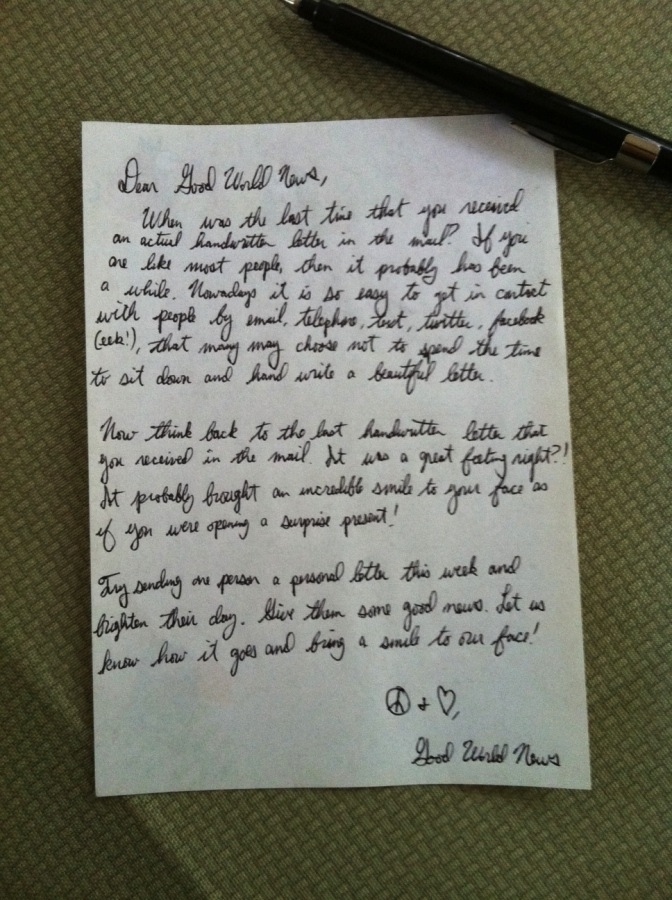 Dear Good World News,
When was the last time that you received
an actual handwritten letter in the mail? If you
are like most people, then it probably has been
a while. Nowadays it is so easy to get in contact
with people by email, telephone, text, twitter, facebook
(eek!), that many may choose not to spend the time
to sit down and hand write a beautiful letter.
Now think back to the last handwritten letter that
you received in the mail. It was a great feeling right?!
It probably brought an incredible smile to your face as
if you were opening a surprise present!
Try sending one person a personal letter this week and
brighten their day. Give them some good news. Let us
know how it goes and bring a smile to our face!
☮ + ♡,
Good World News